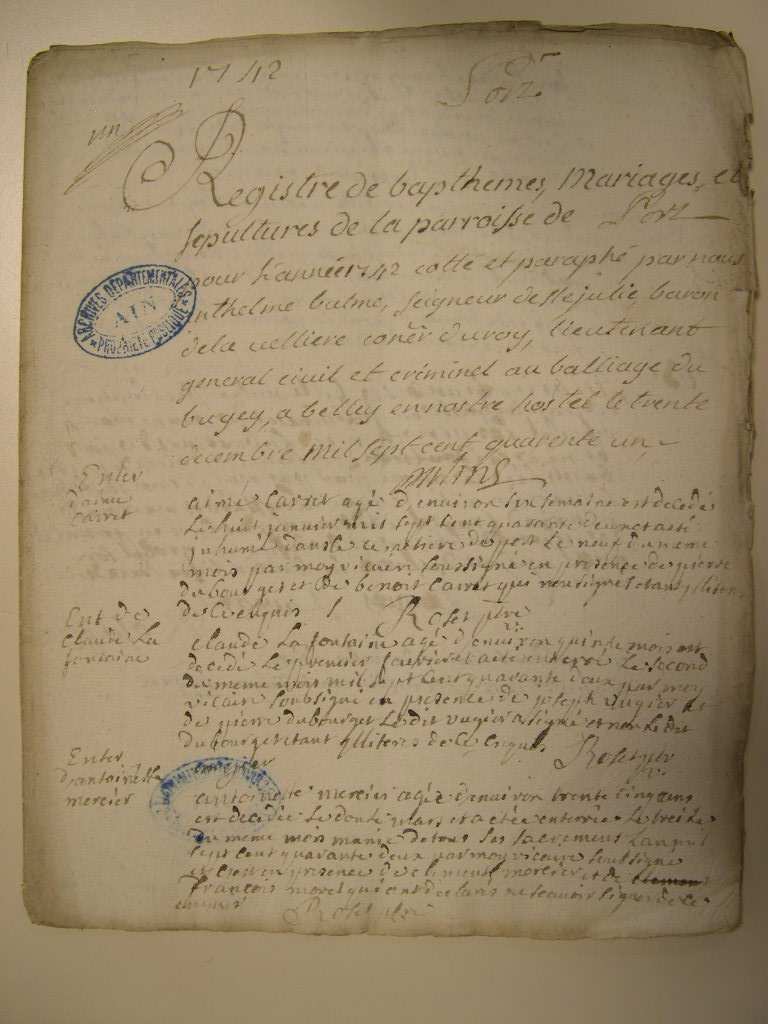 1742
Port
un
Registre de bapthemes, Mariages, et
sepultures de la parroisse de Port
pour l'année 1742 cotté et paraphé par nous
Anthelme balme, seigneur de Ste julie baron
de la velliere coner du roy, lieutenant
general civil et criminel au balliage du
bugey, a belley en nostre hostel le trente
decembre mil sept cent quarente un
ARCHIVES DEPARTEMENTALES
AIN
PROPRIETE PUBLIQUE
balme
Enter
d'aimé
Carret
aimé Carret agé d'environ six semaine est decedé
Le huit janvier mil sept cent quarante deux et a eté
inhumé dans le cemetiere de port le neuf du meme
mois par moy vicaire soussigné en presence de pierre
dubourget et de benoit Carret qui n'ont signé etant illiteres
de ce enquis Roset ptre
Ent de
Claude La
fontaine
Claude La fontaine agé d'environ quinse mois est
decedé Le premier favrier et a eté enterré Le second
du meme mois mil sept cent quarante deux par moy
vicaire soubsigné en presence de joseph vugier et
de pierre dubourget Ledit vugier a signé et non Le dit
dubourget etant illiteres de ce enquis Roset ptre
vugier
Enter
d'antoinette
mercier
antoinette mercier agée d'environ trente cinq ans
est decedée Le douse mars et a eté enterrée Le treise
du meme mois munie de tous ses sacremens L'an mil
sept cent quarante deux par moy vicaire soubsigne
et ce en presence de clement mercier et de
francois morel qui ont declaré ne scavoir signer de ce
enquis Roset ptre